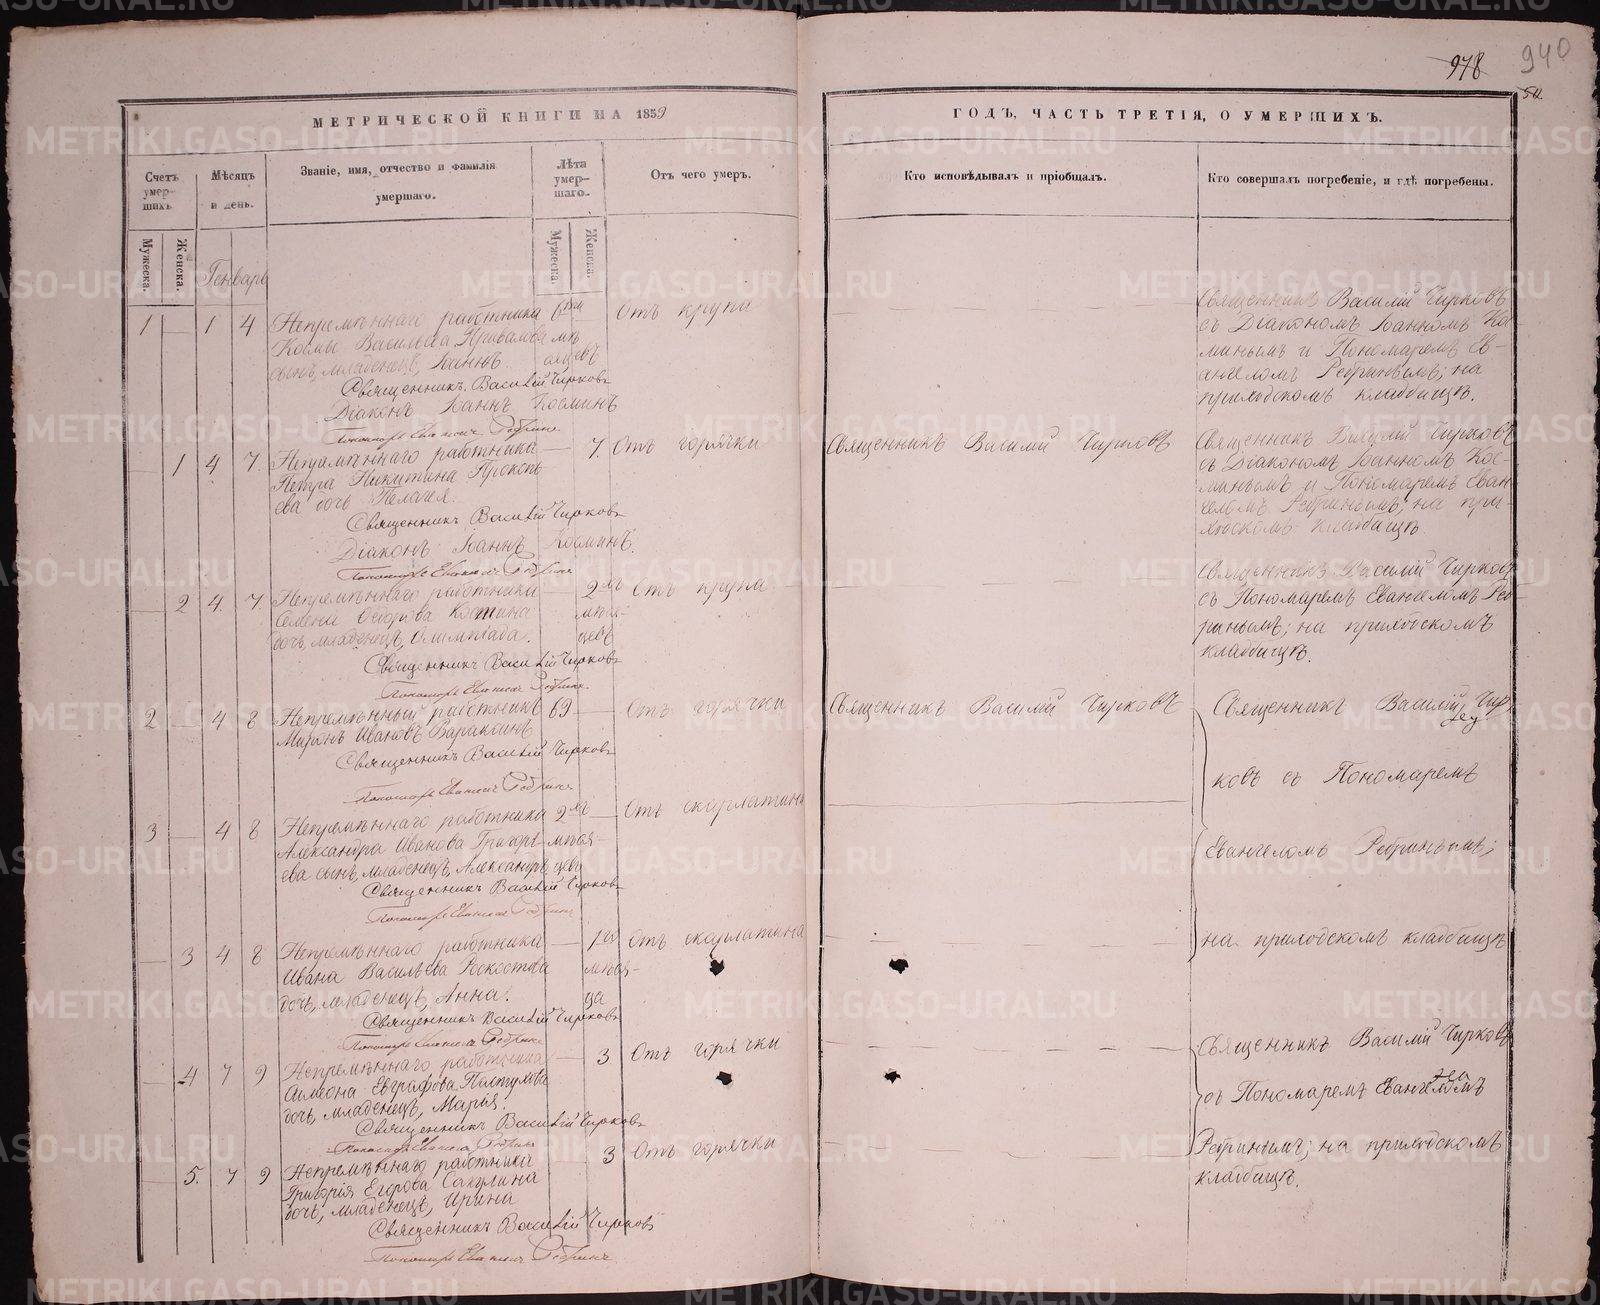 978 940
54.
МЕТРИЧЕСКОЙ КНИГИ НА 1859
ГОДЪ, ЧАСТЬ ТРЕТІЯ, О УМЕРШИХЪ.
Счетъ умер-шихъ.
Мѣсяцъ и день.
Званіе, имя, отчество и фамилія умершаго.
Лѣта умер-шаго.
Отъ чего умеръ.
Кто исповѣдывалъ и пріобщалъ.
Кто совершалъ погребеніе, и гдѣ погребены.
Мужеска. Женска. Генварь Мужеска. Женска.
1 — 1 4 Непремѣннаго работника
Космы Васильева Привалова мѣ
сынъ, младенецъ, Іоаннъ. сяцевъ
Отъ крупа
Священникъ Василій Чирковъ
съ Діакономъ Іоанномъ Кос-
минымъ и Пономаремъ Ев-
ангеломъ Ребринымъ; на
приходскомъ кладбищѣ.
Священникъ Василій Чирковъ
Діаконъ Іоаннъ Косминъ
Пономарь Евангелъ Ребринъ
— 1 4 7. Непремѣннаго работника — 7. Отъ горячки
Петра Никитина Прокопь-
ева дочь Пелагея.
Священникъ Василій Чирковъ
Священникъ Василій Чирковъ
съ Діакономъ Іоанномъ Кос-
минымъ и Пономаремъ Еван-
геломъ Ребринымъ; на при-
ходскомъ кладбищѣ
Священникъ Василій Чирковъ
Діаконъ Іоаннъ Косминъ.
Пономарь Евангелъ Ребринъ
— 2 4. 7. Непремѣннаго работника — 2хъ Отъ крупа
Семена Ѳедорова Костина мѣся-
дочь, младенецъ, Олимпіада. цевъ
Священникъ Василій Чирковъ
съ Пономаремъ Евангеломъ Реб-
ринымъ; на приходскомъ
кладбищѣ.
Священникъ Василій Чирковъ
Пономарь Евангелъ Ребринъ.
2 — 4 8 Непремѣнный работникъ 69 — Отъ горячки
Миронъ Ивановъ Баракшинъ
Священникъ Василій Чирковъ
Священникъ Василій Чир
ковъ съ Пономаремъ
Евангеломъ Ребринымъ;
на приходскомъ кладбищѣ
Священникъ Василій Чирковъ
Пономарь Евангелъ Ребринъ
3 — 4 8 Непремѣннаго работника 2хъ — Отъ скарлатины
Александра Иванова Григорь- мѣся-
ева сынъ, младенецъ, Александръ цевъ
Священникъ Василій Чирковъ
Пономарь Евангелъ Ребринъ
— 3 4 8 Непремѣннаго работника — 1го Отъ скарлатина
Ивана Васильева мѣся-
дочь, младенецъ, Анна. ца
Священникъ Василій Чирковъ
Пономарь Евангелъ Ребринъ
— 4 7 9 Непремѣннаго работника — 3 Отъ горячки
Симеона Евграфова Пастухова
дочь, младенецъ, Марія.
Священникъ Василій Чирковъ
съ Пономаремъ Евангеломъ
Ребринымъ; на приходскомъ
кладбищѣ.
Священникъ Василій Чирковъ
Пономарь Евангелъ Ребринъ
— 5. 7 9 Непремѣннаго работника — 3 Отъ горячки
Григорія Егорова Сакулина
дочь, младенецъ, Ирина
Священникъ Василій Чирковъ
Пономарь Евангелъ Ребринъ.
METRIKI.GASO-URAL.RU